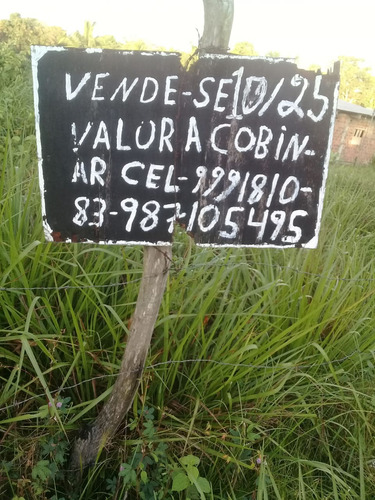 VENDE-SE 10/25
VALOR A COBIN-
AR CEL-9991810-
83-987105495